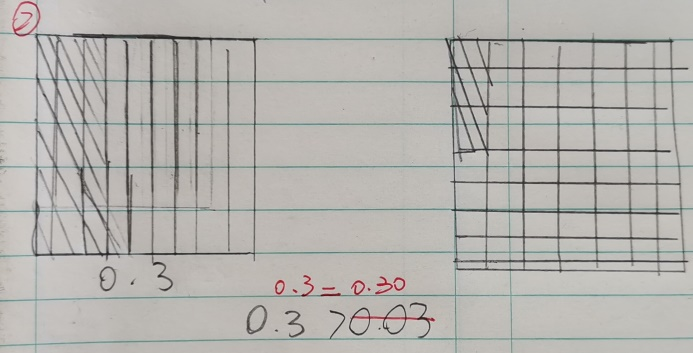 2
0.3
0.3 = 0.30
0.3 > 0.03